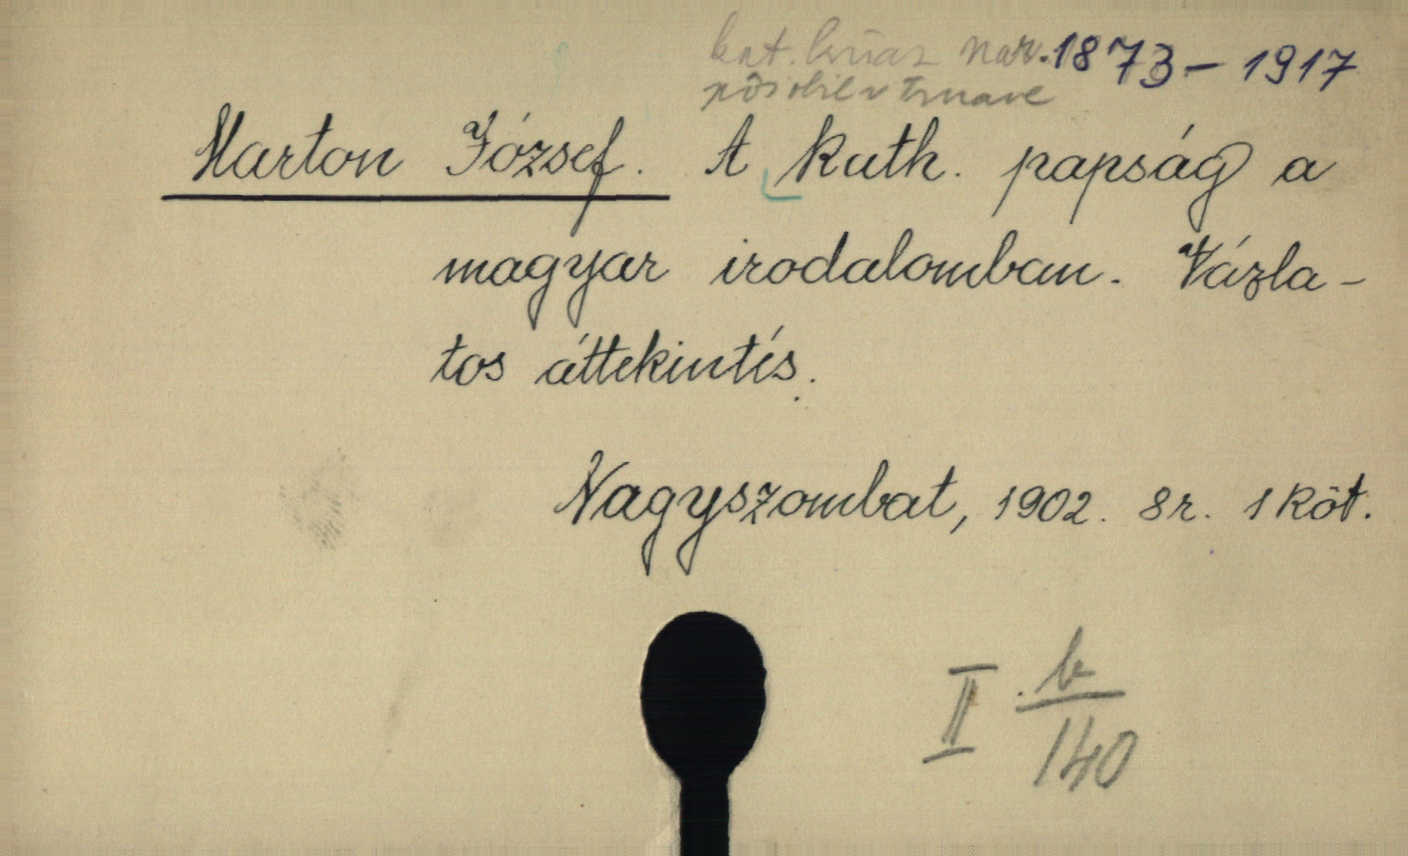 kat. kňaz nar. 1873-1917
pôsobil v Trnave
Marton József. A kath. papság a
magyar irodalomban. Vázla-
tos áttekintés.
Nagyszombat, 1902. 8r. 1 köt.
II b
140